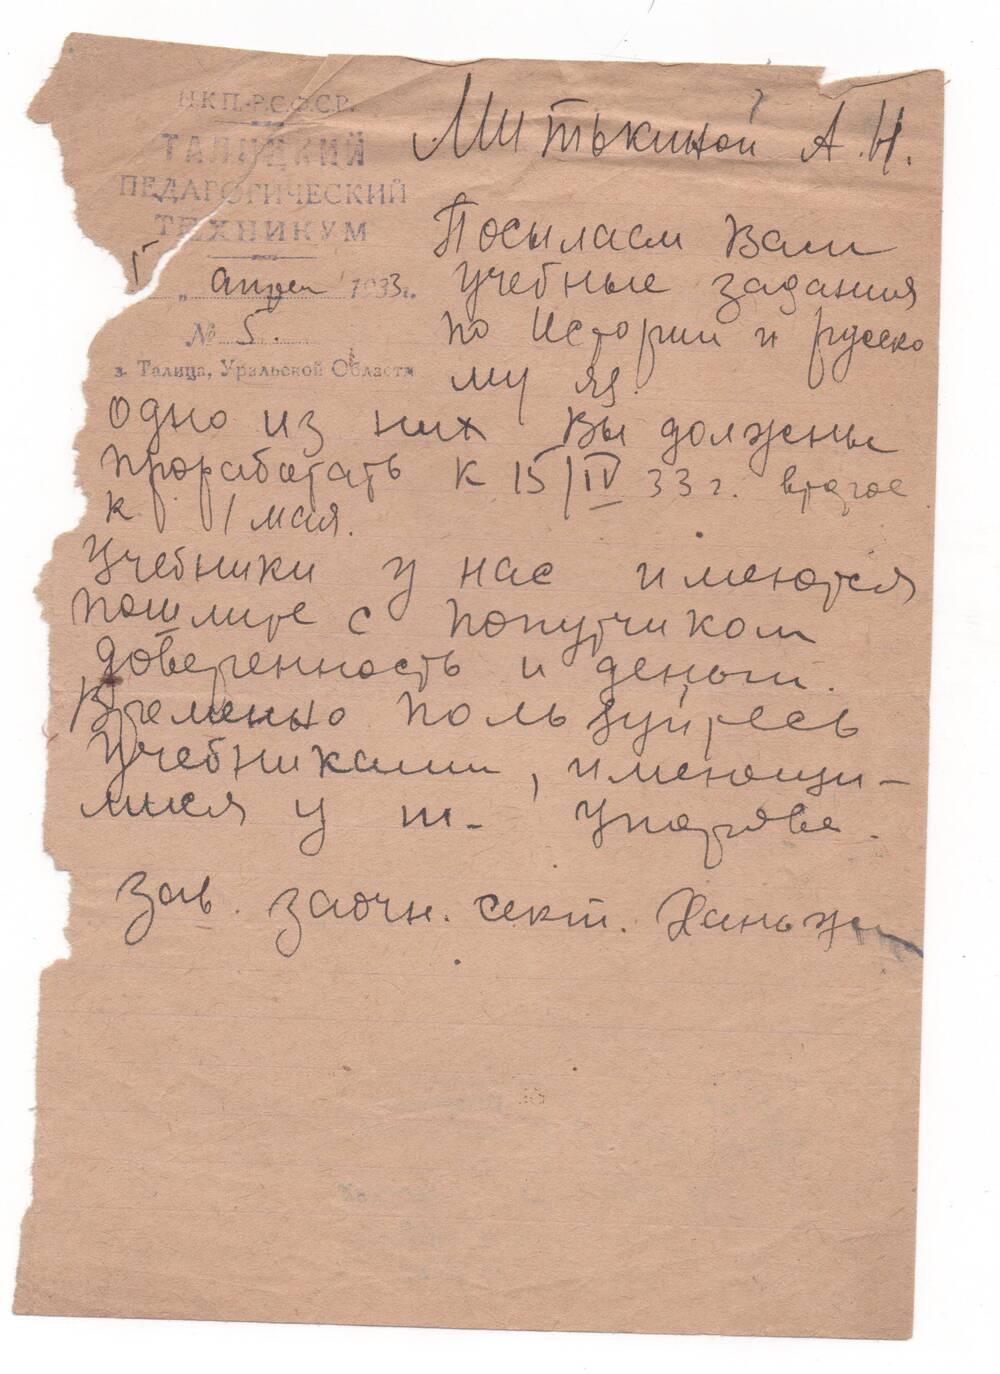 Н.К.П.-Р.С.Ф.С.Р.
ТАЛИЦКИЙ
ПЕДАГОГИЧЕСКИЙ
ТЕХНИКУМ
" апрел 1933 г.
№ 5.
г. Талица, Уральской Области
Митькиной А.Н.
Посылаем Вам
учебные задания
по истории и русско
му яз.
одно из них Вы должны
проработать к 15/IV 33 г. второе
к 1 мая.
Учебники у нас имеются
пошлите с попутчиком
доверенность и деньги.
Временно пользуйтесь
учебниками, имеющи-
мися у т-
Зав. заочн. сект.